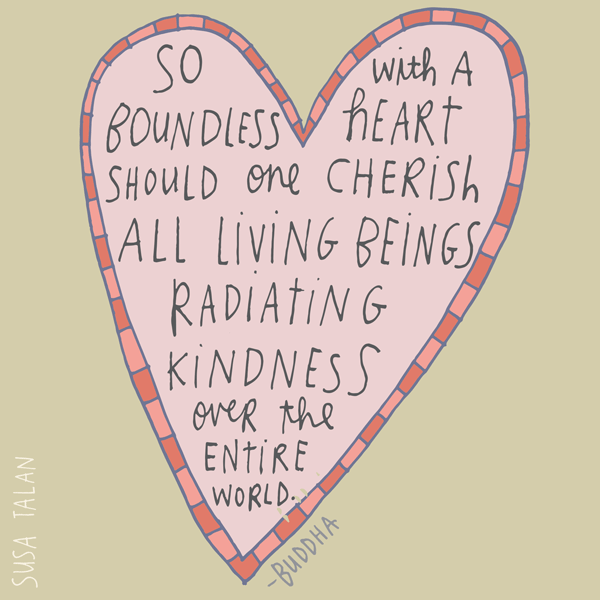 SO with A
BOUNDLESS hEART
SHOULD one CHERiSh
ALL LiViNG BEiNGS
RADiATiNG
KiNDNESS
oveR the
ENTiRE
WORLD.
-BUDDHA
SUSA TALAN